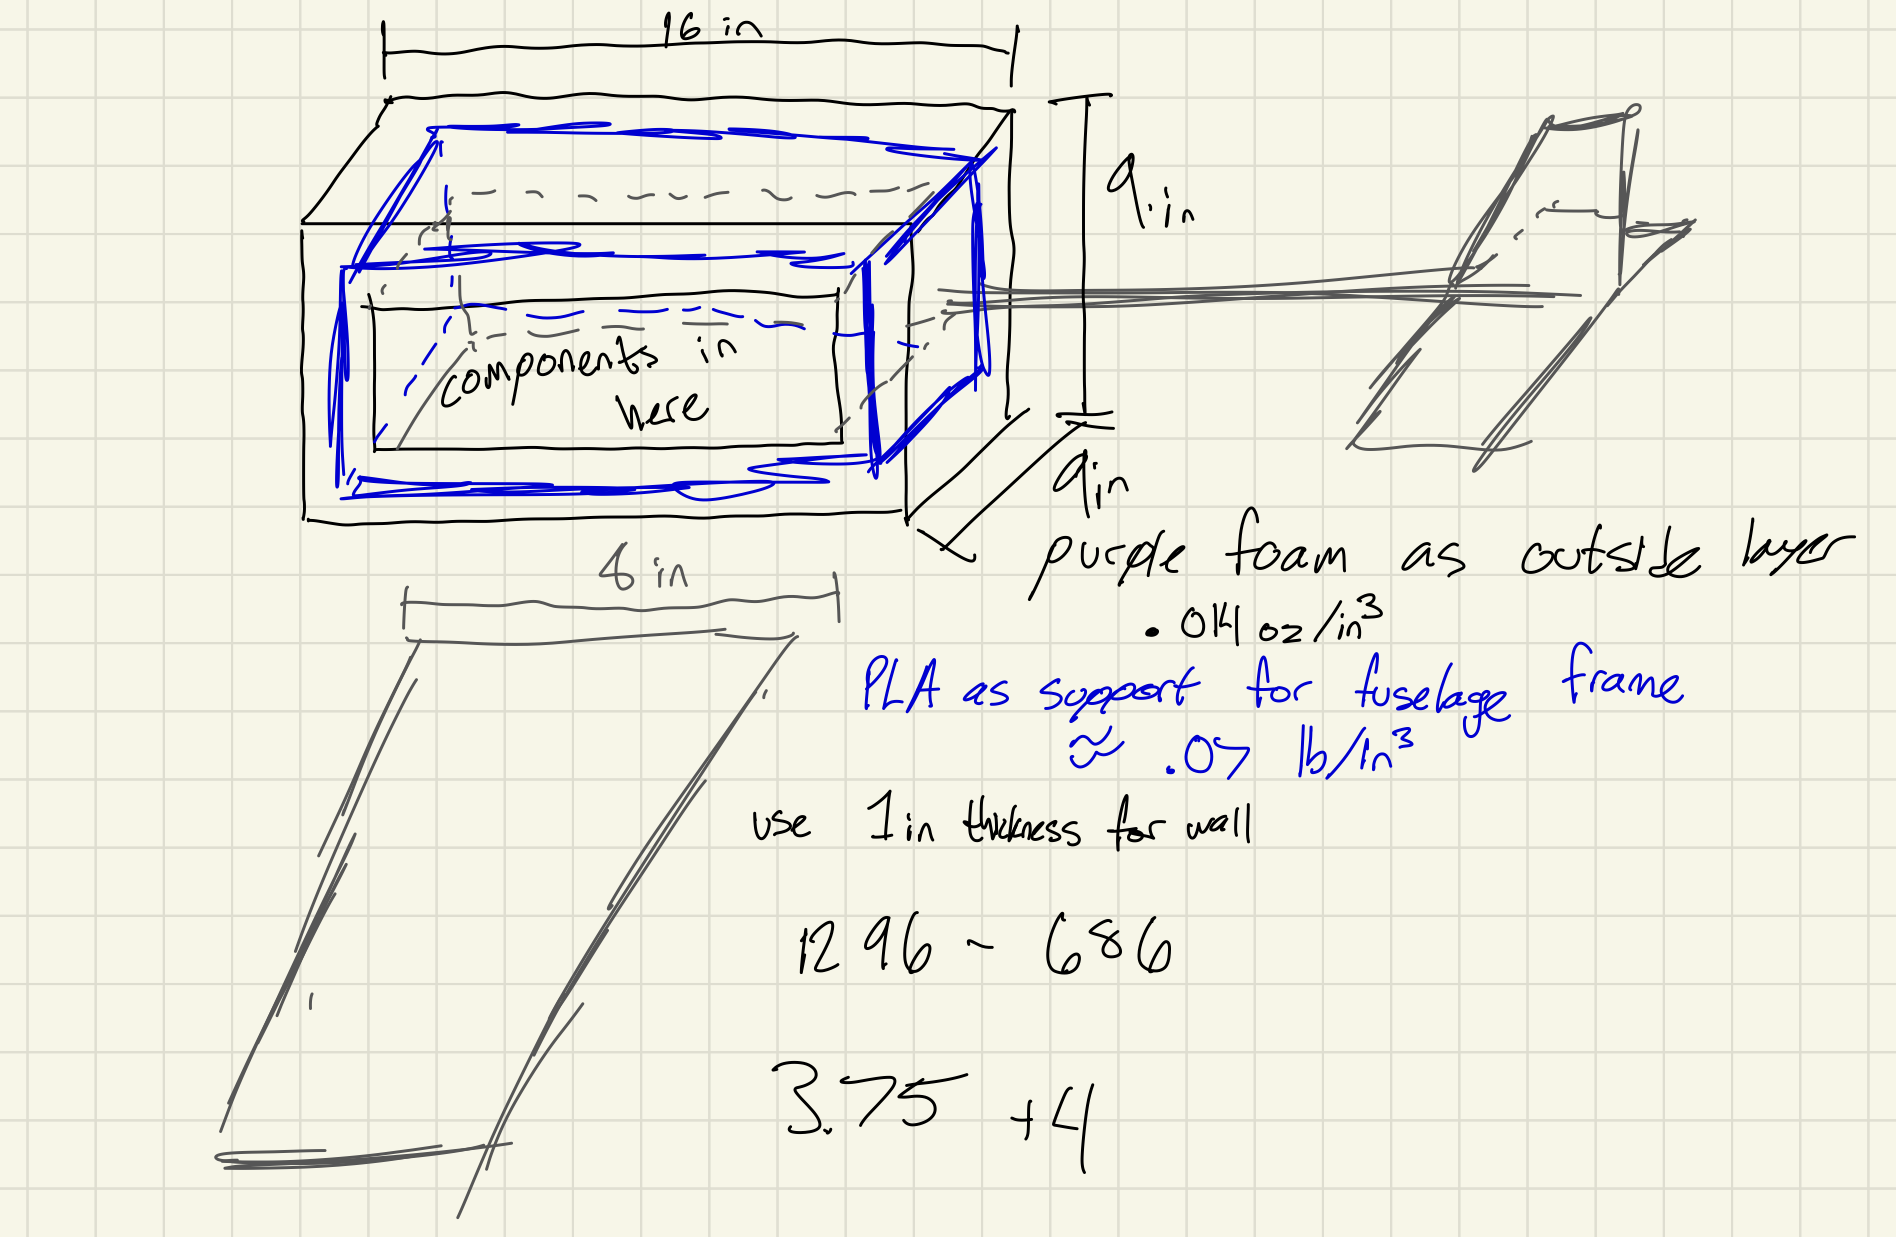 16 in
9 in
components in
here
9 in
purple foam as outside layer
.014 oz/in³
6 in
PLA as support for fuselage frame
≈ .07 lb/in³
use 1 in thickness for wall
1296 - 686
3.75 + 4